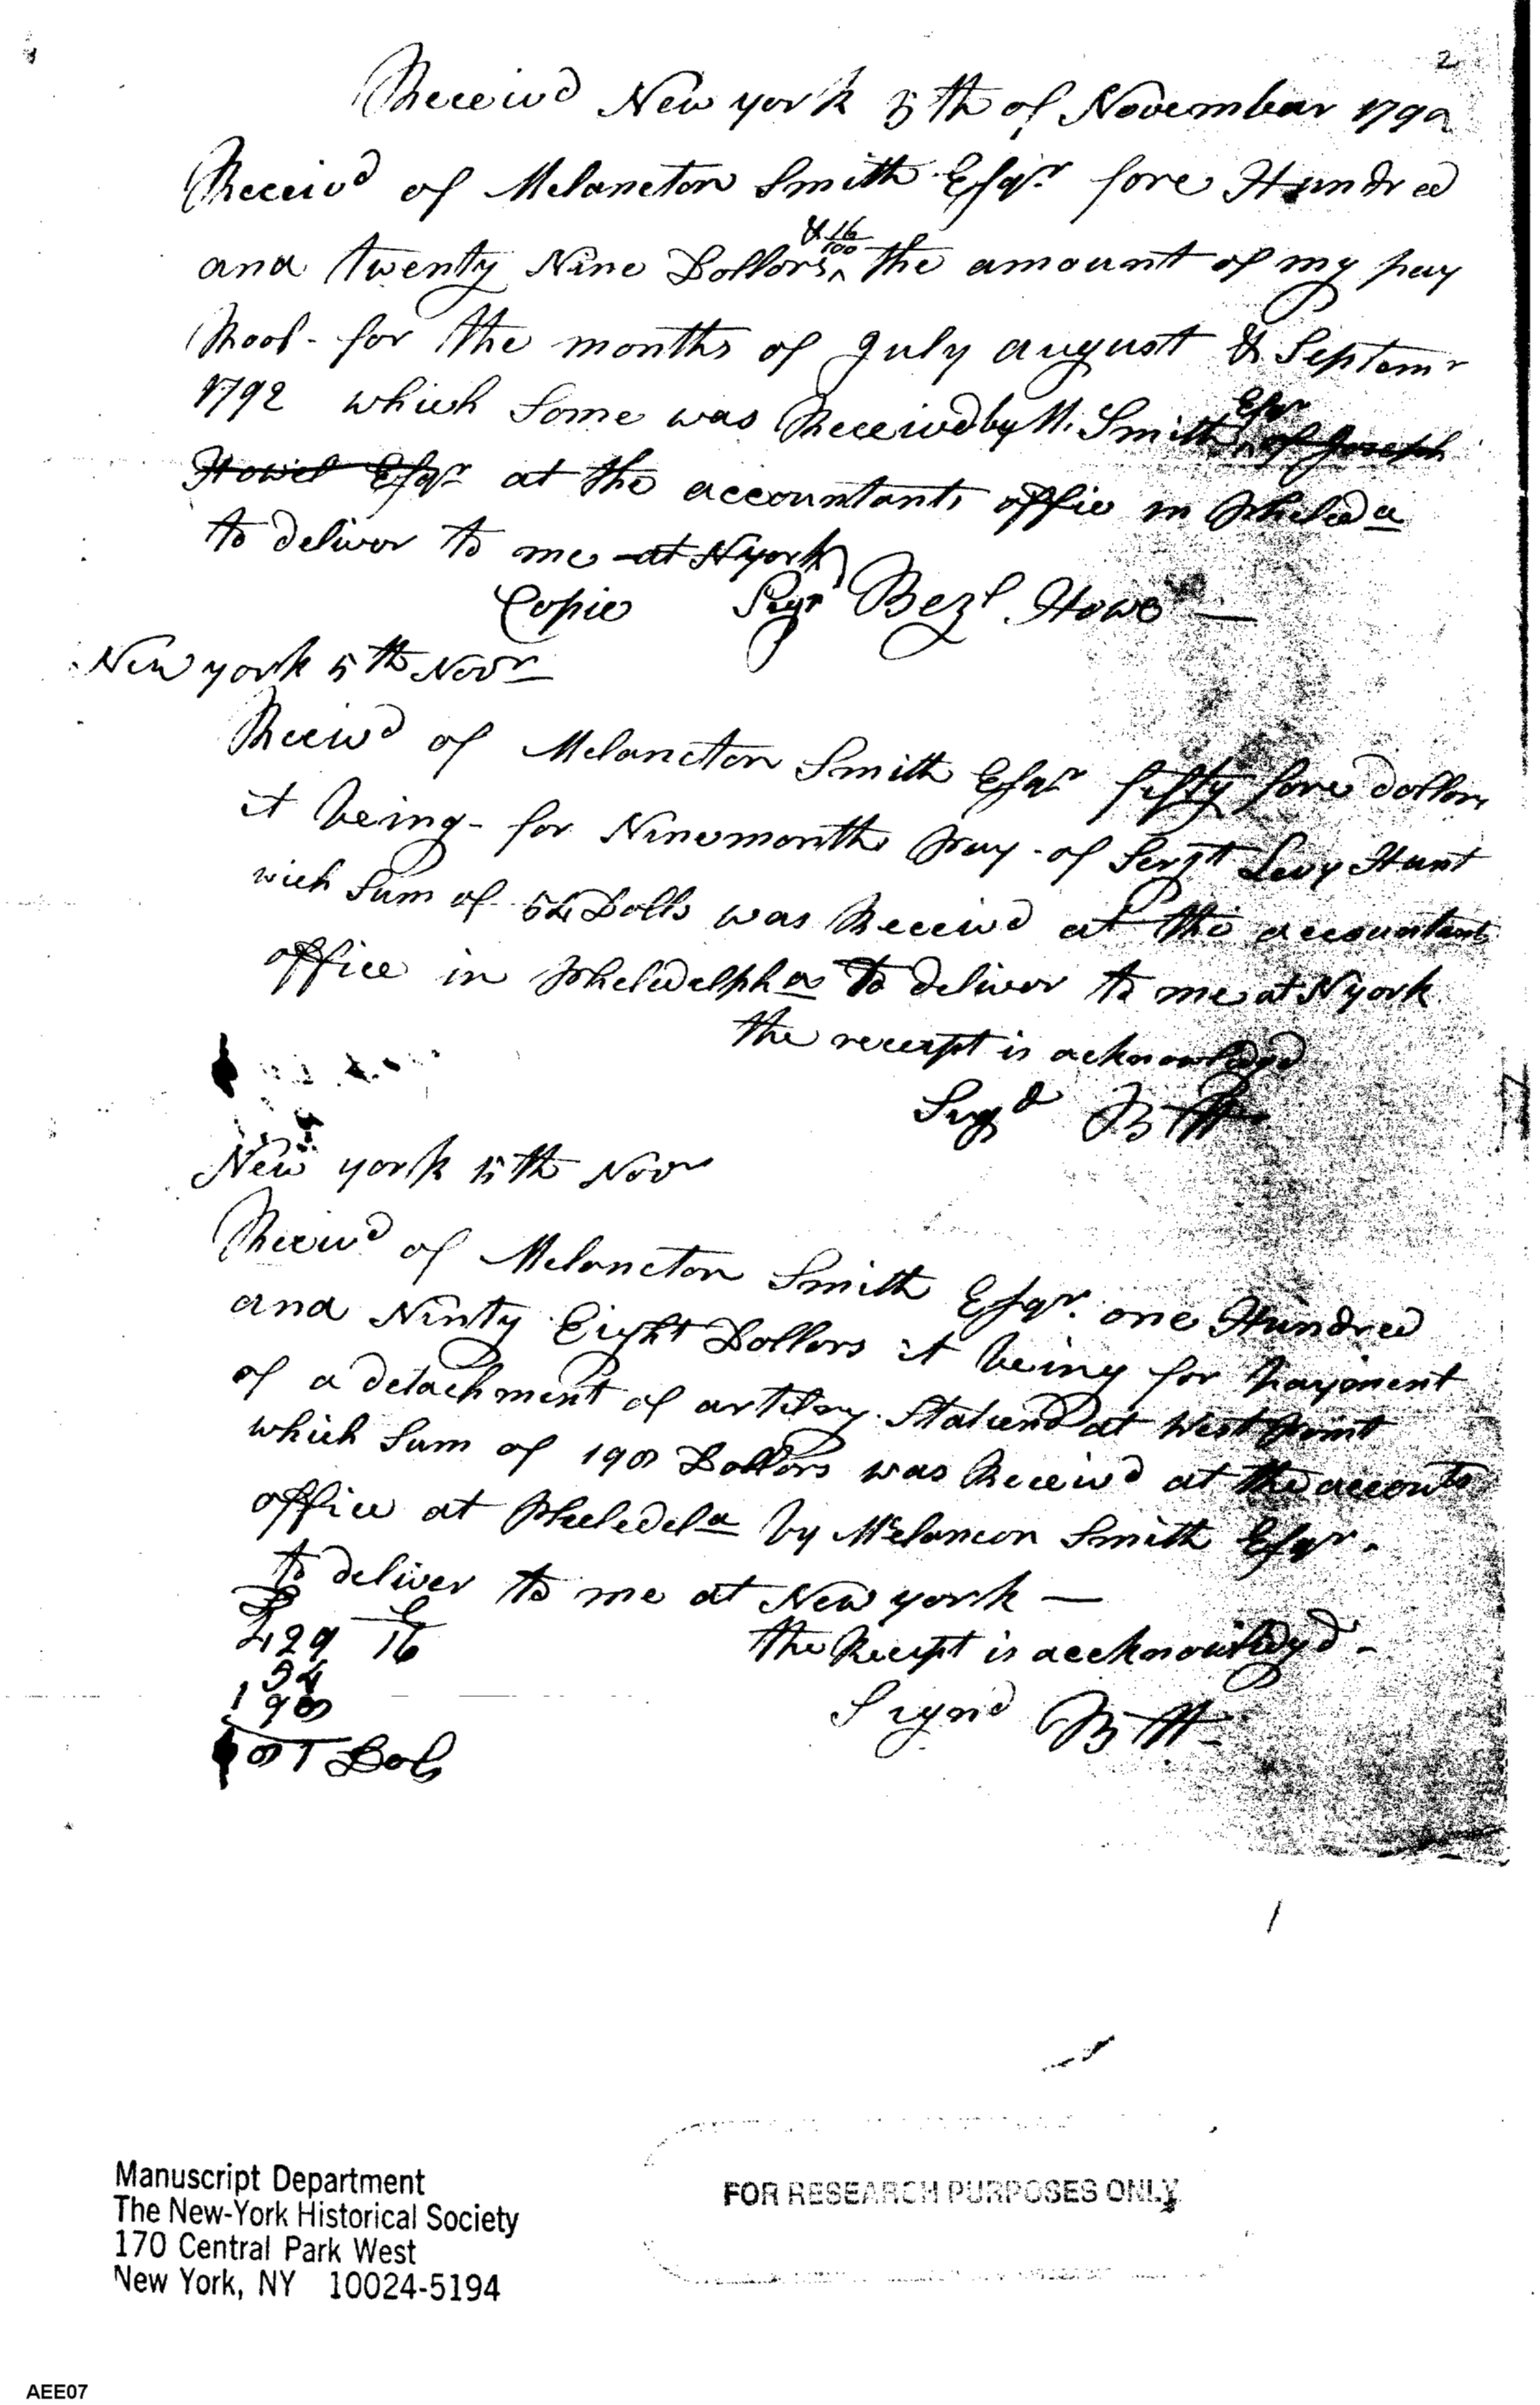 2
Receivd New york 5th of November 1792
Receivd of Melancton Smith Esqr fore Hundred
& 16/100
and twenty Nine Dollors ^ the amount of my pay
Rool - for the months of July august & Septemr
Esqr
1792 which Some was Received by M. Smith ^ of Joseph
Howel Esqr at the accountants offic in Pheleda
to deliver to me at N york
Copie Sigd Bezl Howe —
New york 5th Novr
Receivd of Melancton Smith Esqr fifty fore dollors
it being - for Nine months pay - of Sergtt Levy Hunt
wich Sum of 54 Dolls was Receivd at the accountants
office in Pheledelpha to deliver to me at N york
the receipt is acknowledgd
Sigd B H
New york 5th Novr
Receivd of Melancton Smith Esqr. one Hundred
and Ninty Eight Dollors it being for payment
of a detachment of artilery Stationd at West point
which Sum of 198 Dollors was Receivd at the accounts
office at Pheledela by Melancon Smith Esqr.
to deliver to me at New york —
the Receipt is accknowledgd -
429 16
54
198
Signd B H -
81 Dols
Manuscript Department
The New-York Historical Society
170 Central Park West
New York, NY 10024-5194
FOR RESEARCH PURPOSES ONLY
AEE07